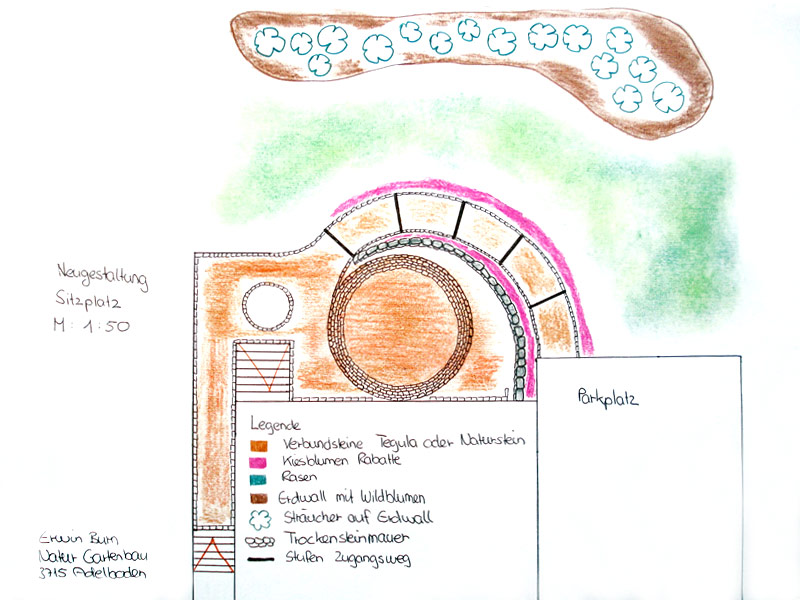 Neugestaltung
Sitzplatz
M: 1:50
Parkplatz
Legende
Verbundsteine Tegula oder Naturstein
Kiesblumen Rabatte
Rasen
Erdwall mit Wildblumen
Sträucher auf Erdwall
Trockensteinmauer
Stufen Zugangsweg
Erwin Burn
Natur Gartenbau
3715 Adelboden